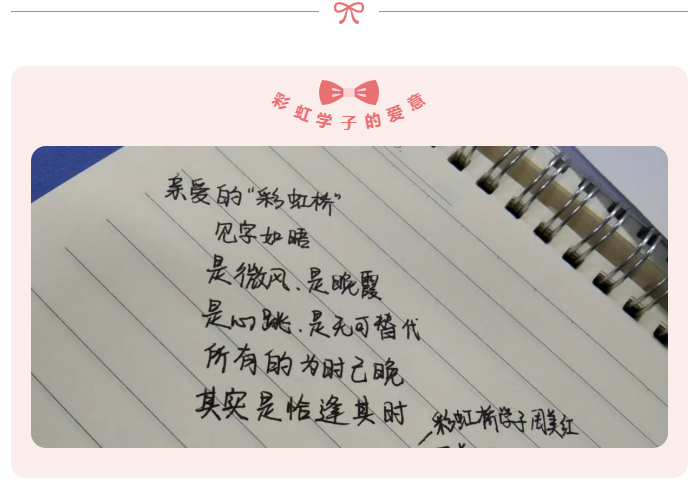 彩虹学子的爱意
亲爱的“彩虹桥”
见字如晤
是微风、是晚霞
是心跳、是无可替代
所有的为时己晚
其实是恰逢其时
彩虹桥学子周美红